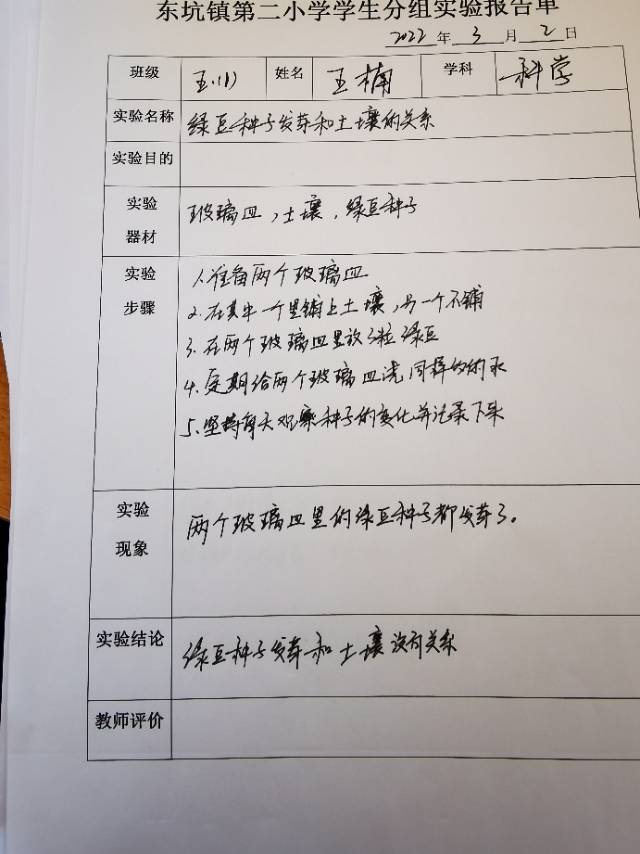 东坑镇第二小学学生分组实验报告单
2022 年 3 月 2 日
班级 五.(1) 姓名 王楠 学科 科学
实验名称 绿豆种子发芽和土壤的关系
实验目的
实验器材 玻璃皿，土壤，绿豆种子
实验步骤 1.准备两个玻璃皿
2.在其中一个里铺上土壤，另一个不铺
3.在两个玻璃皿里放3粒绿豆
4.定期给两个玻璃皿浇同样的的水
5.坚持每天观察种子的变化并记录下来
实验现象 两个玻璃皿里的绿豆种子都发芽了。
实验结论 绿豆种子发芽和土壤没有关系
教师评价